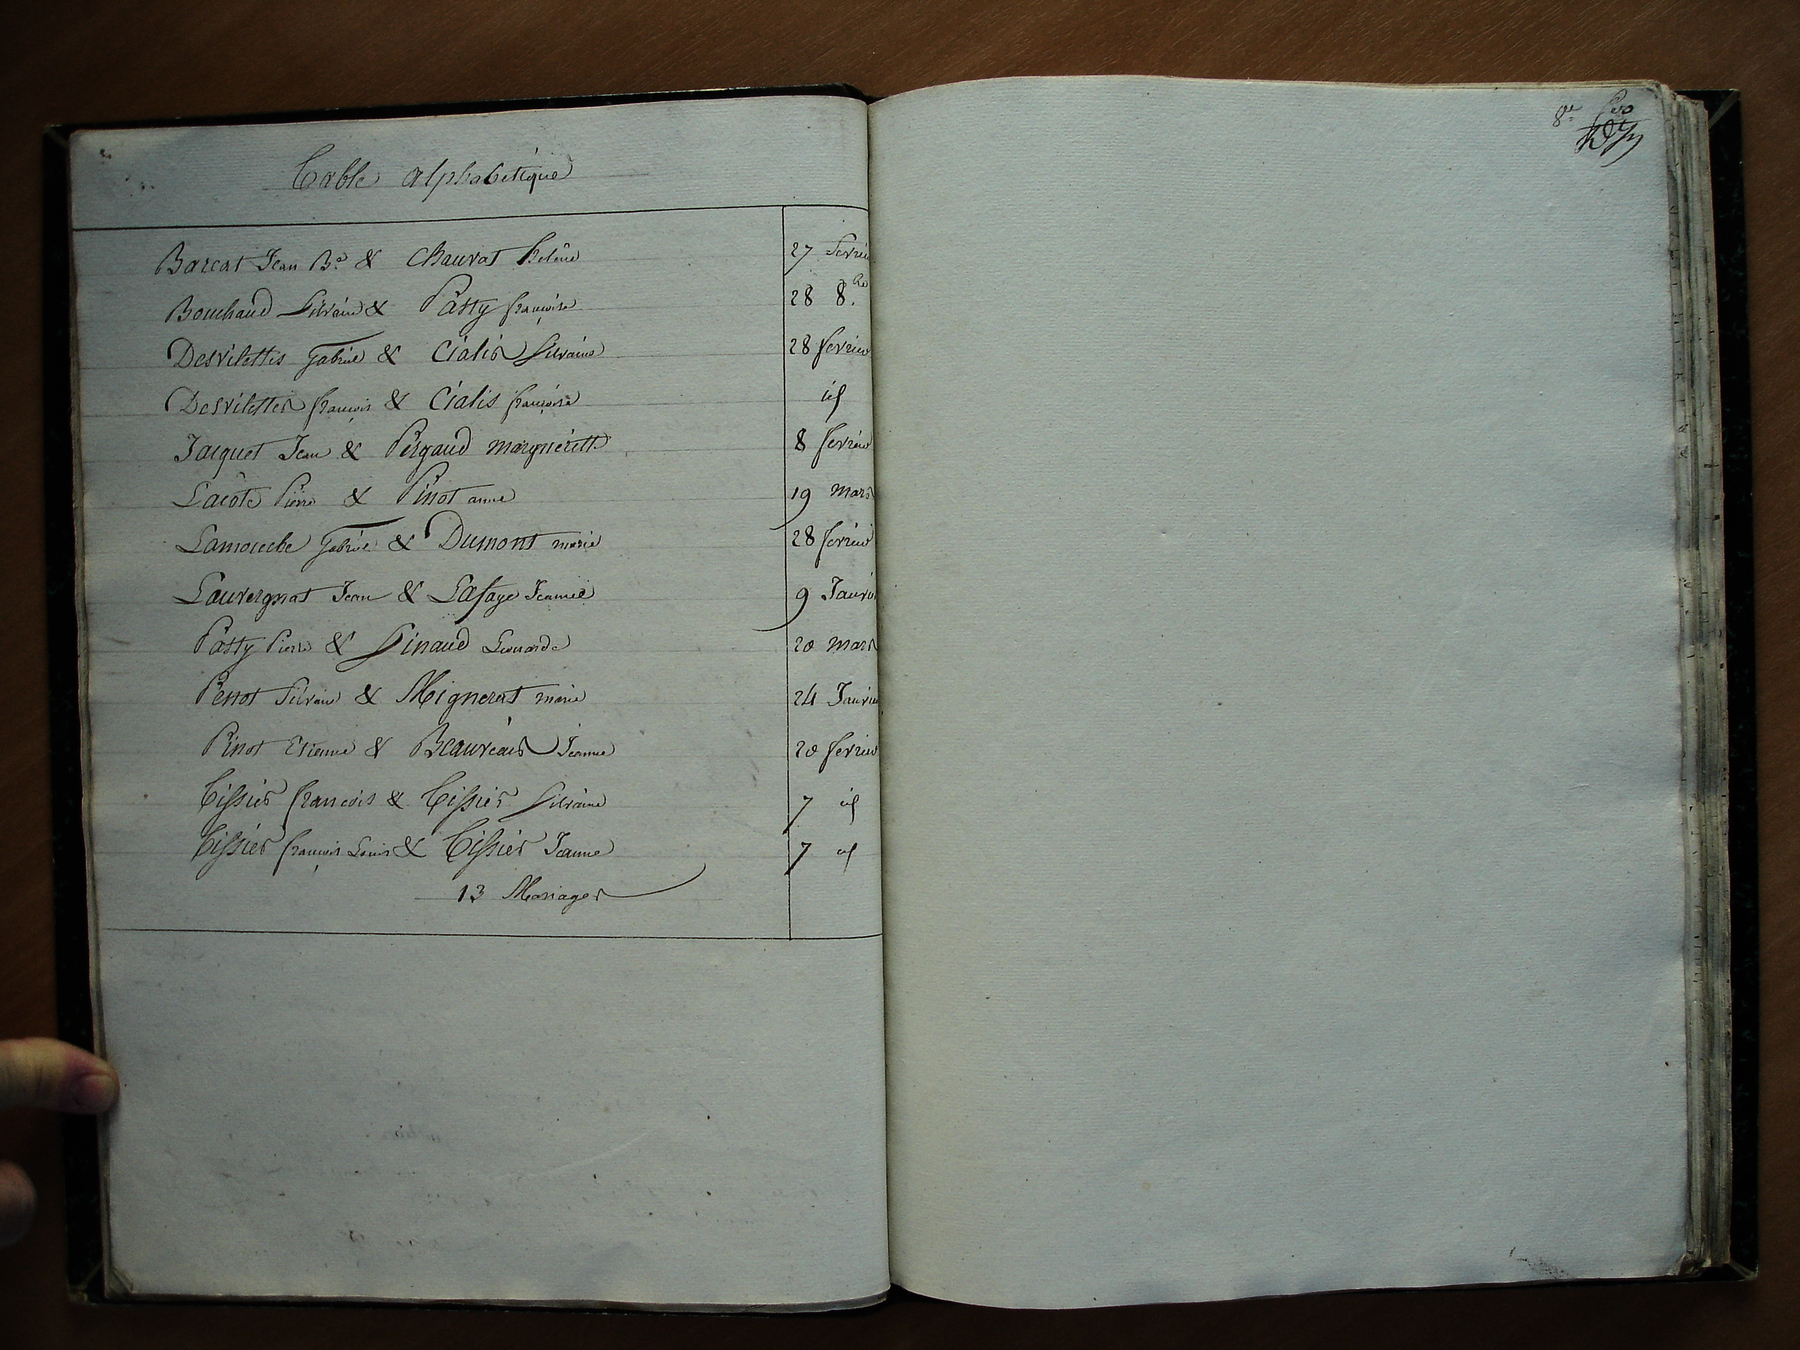 Table alphabétique
Barcat Jean Bte & Chauvat helène 27 fevrier
Bouchaud Silvain & Patty françoise 28 8.bre
Desvilettes gabriel & Cialis Silvaine 28 fevrier
Desvilettes françois & Cialis françoise id
Jacquet Jean & Pergaud marguéritte 8 fevrier
Lacôte Pierre & Pinot anne 19 mars
Lamouche gabriel & Dumont marie 28 fevrier
Louvergnat Jean & Lafaye Jeanne 9 Janvier
Patty Pierre & Sinaud Leonarde 20 mars
Penot Silvain & Mignerat marie 24 Janvier
Pinot Etienne & Beauvais Jeanne 20 fevrier
Tissier françois & Tissier Silvaine 7 id
Tissier françois Louis & Tissier Jeanne 7 id
13 Mariages
8e